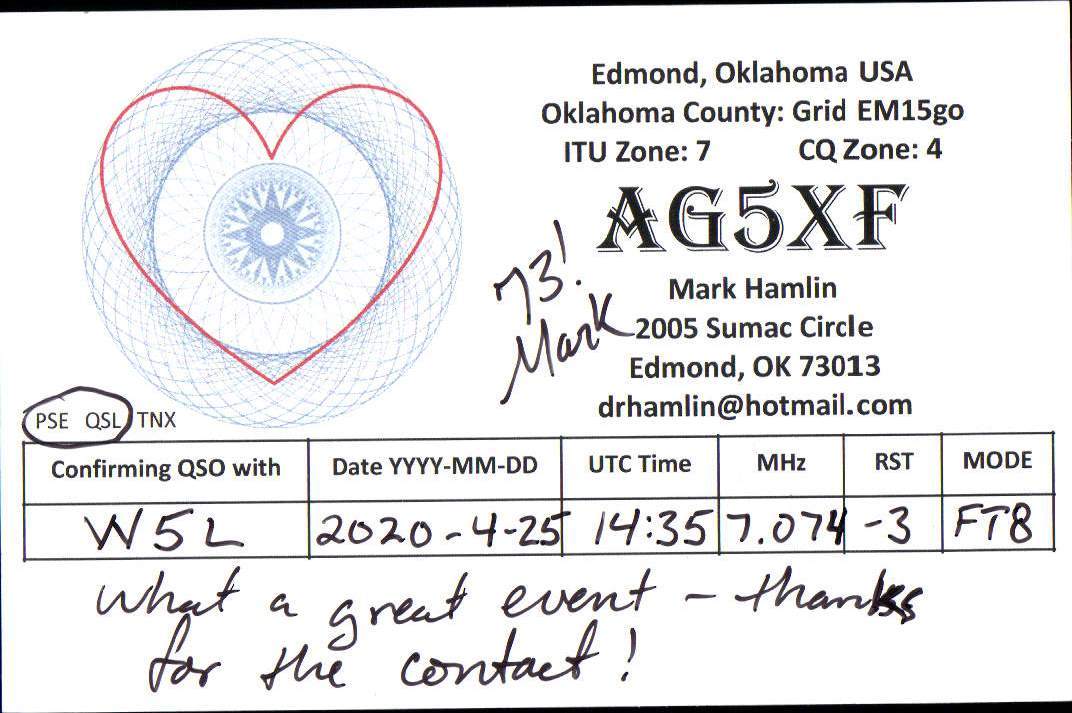 Edmond, Oklahoma USA
Oklahoma County: Grid EM15go
ITU Zone: 7 CQ Zone: 4
AG5XF
73!
Mark
Mark Hamlin
2005 Sumac Circle
Edmond, OK 73013
drhamlin@hotmail.com
PSE QSL TNX
Confirming QSO with Date YYYY-MM-DD UTC Time MHz RST MODE
W5L 2020-4-25 14:35 7.074 -3 FT8
What a great event - thanks
for the contact!